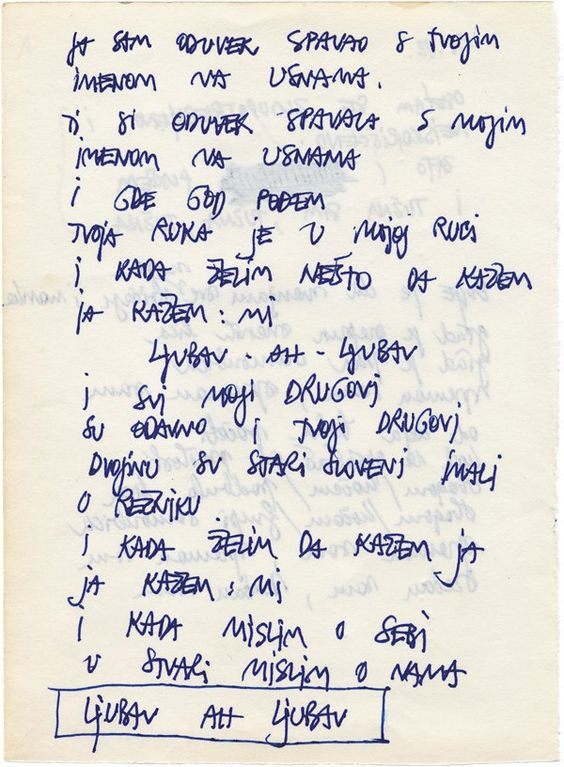 JA SAM ODUVEK SPAVAO S tvojim
IMENOM NA USNAMA.
ti SI ODUVEK SPAVALA S Mojim
IMENOM NA USNAMA
I GDE GOD POĐEM
TVOJA RUKA JE U Mojoj RUCI
I KADA ŽELIM NEŠTO DA KAŽEM
JA KAŽEM: Mi
LJUBAV - AH - LJUBAV
I SVI MOJI DRUGOVI
SU ODAVNO I TVOJI DRUGOVI
DVOJINU SU STARI SLOVENI IMALI
O JEZIKU
I KADA ŽELIM DA KAŽEM JA
JA KAŽEM: Mi
I KADA MISLIM O SEBI
U STVARI MISLIM O NAMA
LJUBAV AH LJUBAV